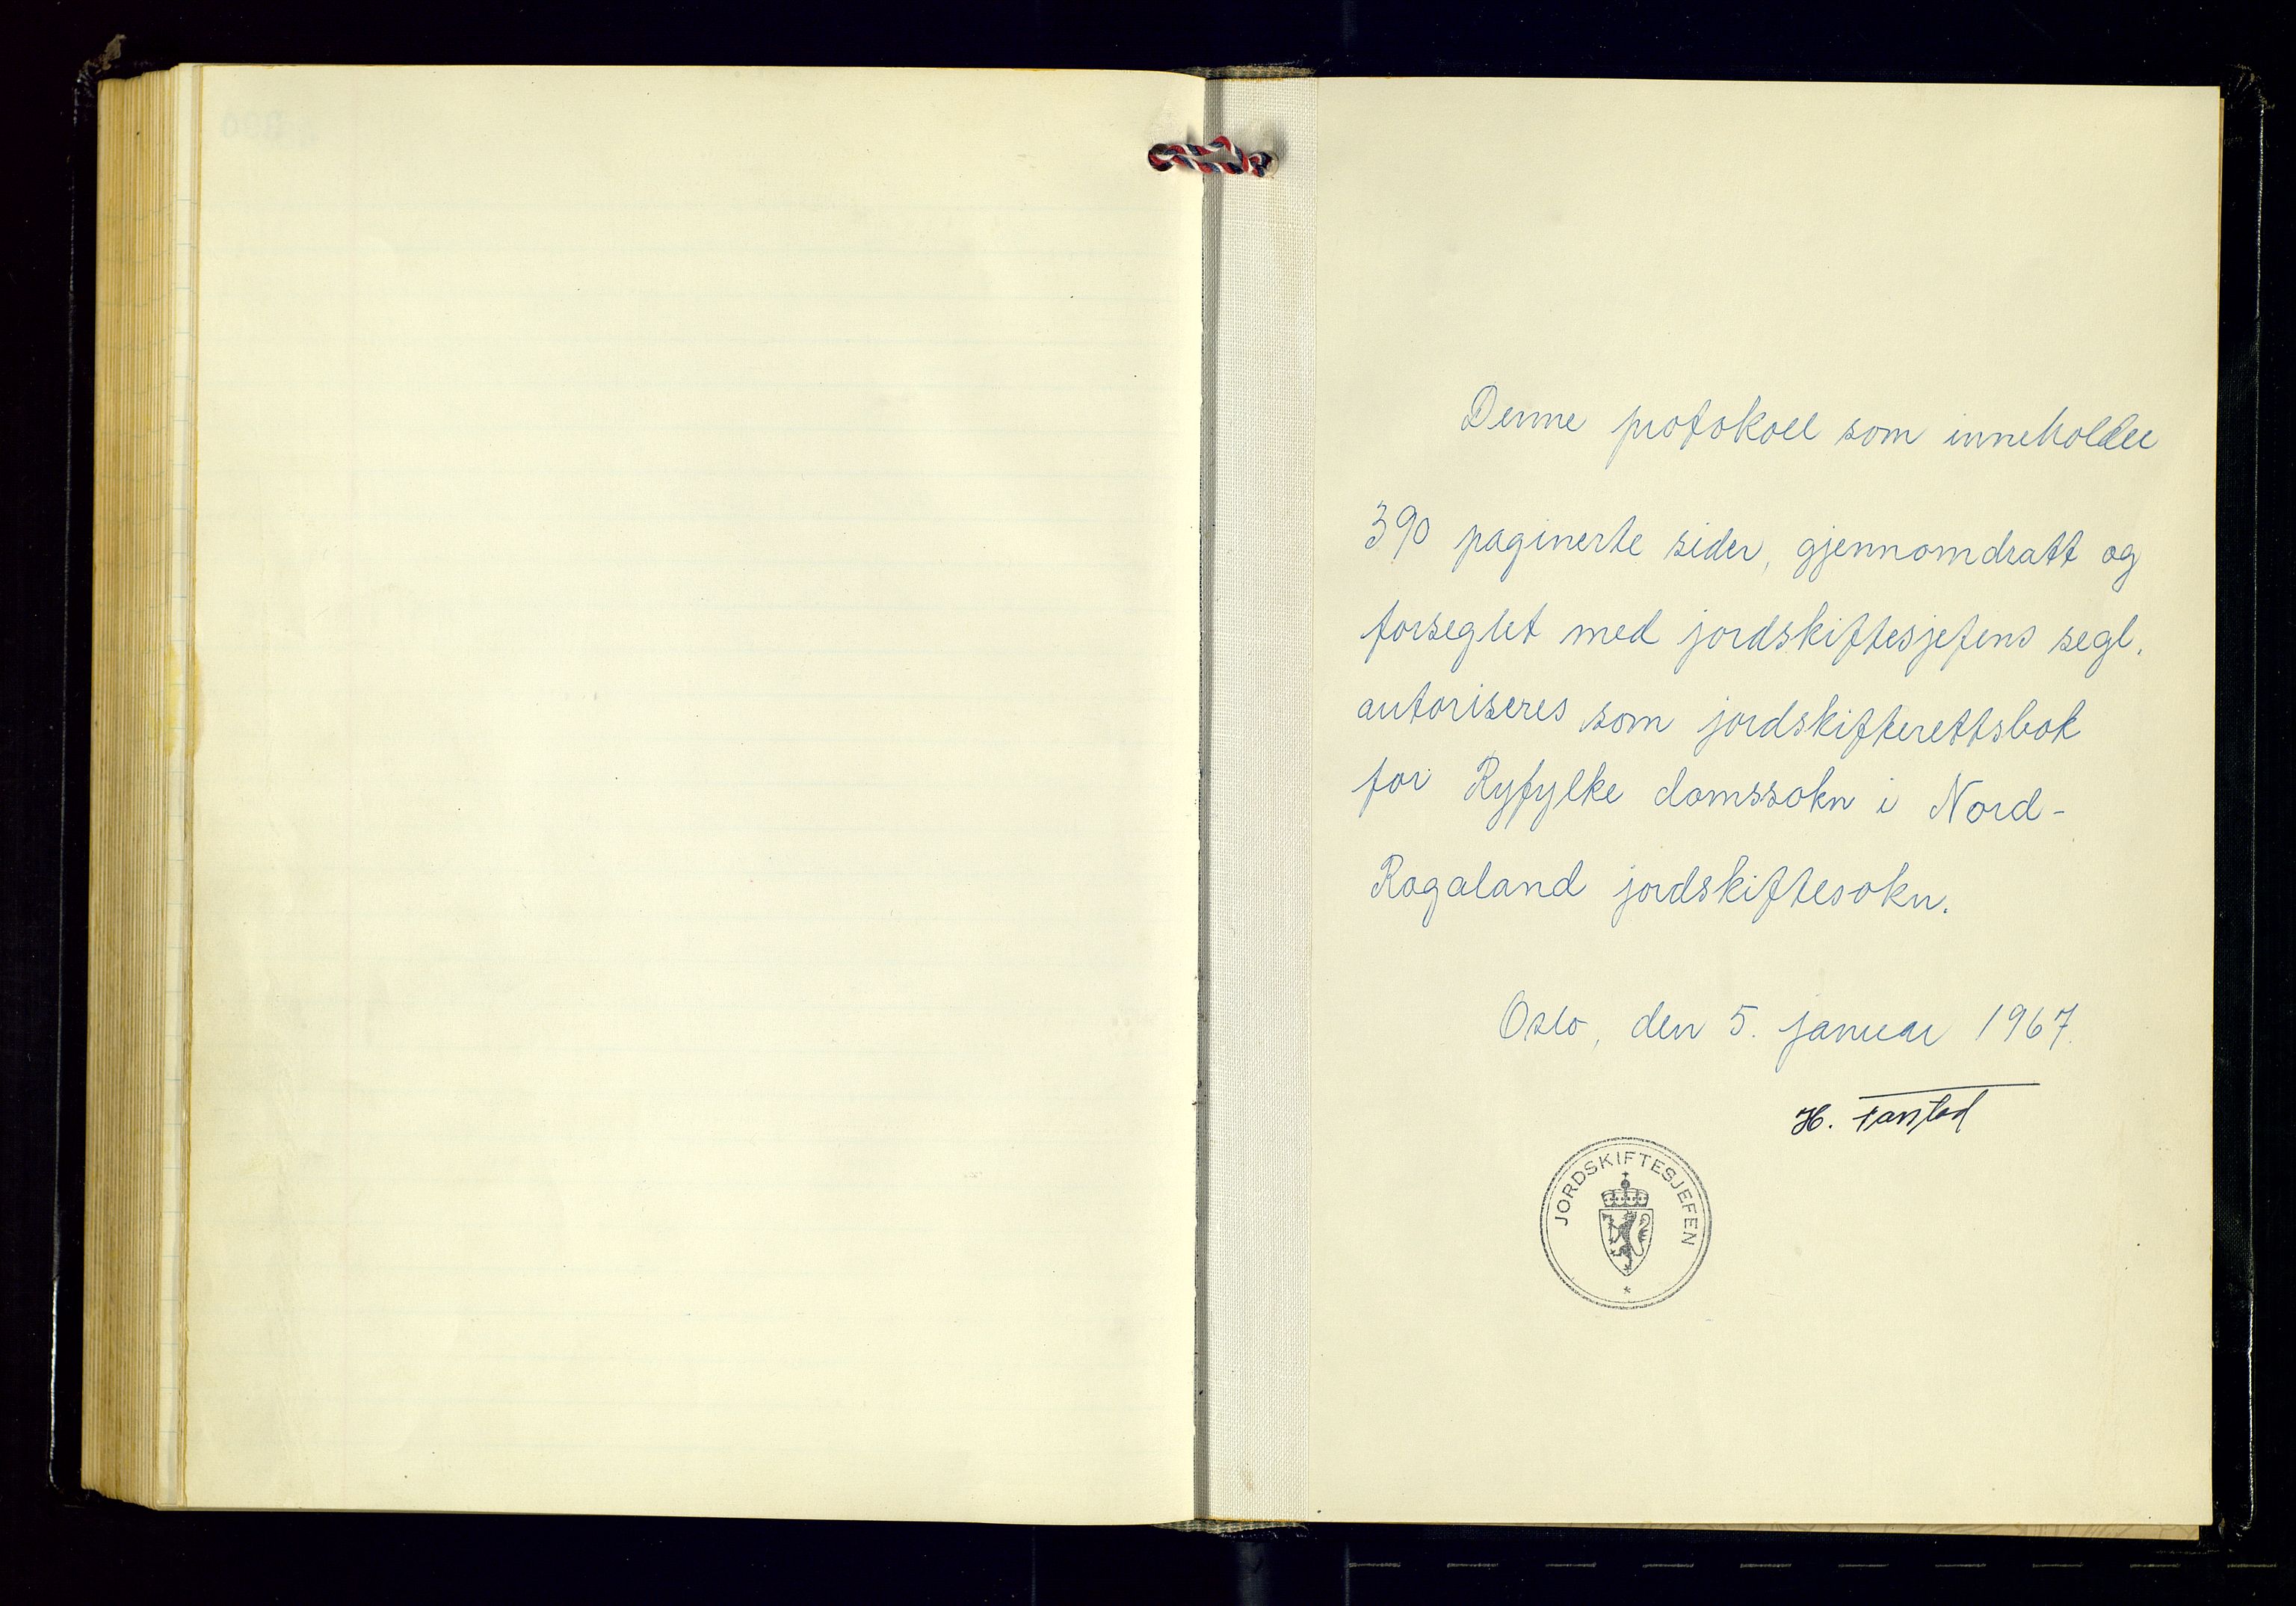 Denne protokoll som inneholder
390 paginerte sider, gjennomdratt og
forseglet med jordskiftesjefens segl,
autoriseres som jordskifterettsbok
for Ryfylke domssokn i Nord-
Rogaland jordskiftesokn.
Oslo, den 5. januar 1967.
H.
JORDSKIFTESJEFEN
*